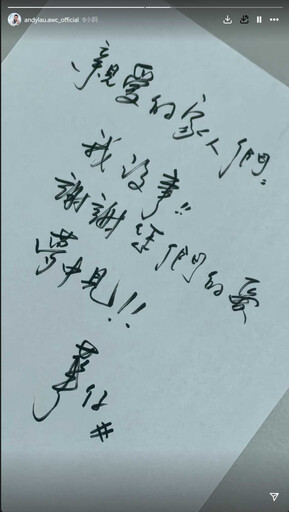 andylau.awc_official 9小時
親愛的家人們：
我沒事!!
謝謝你們的愛
夢中見!!!
華仔
#